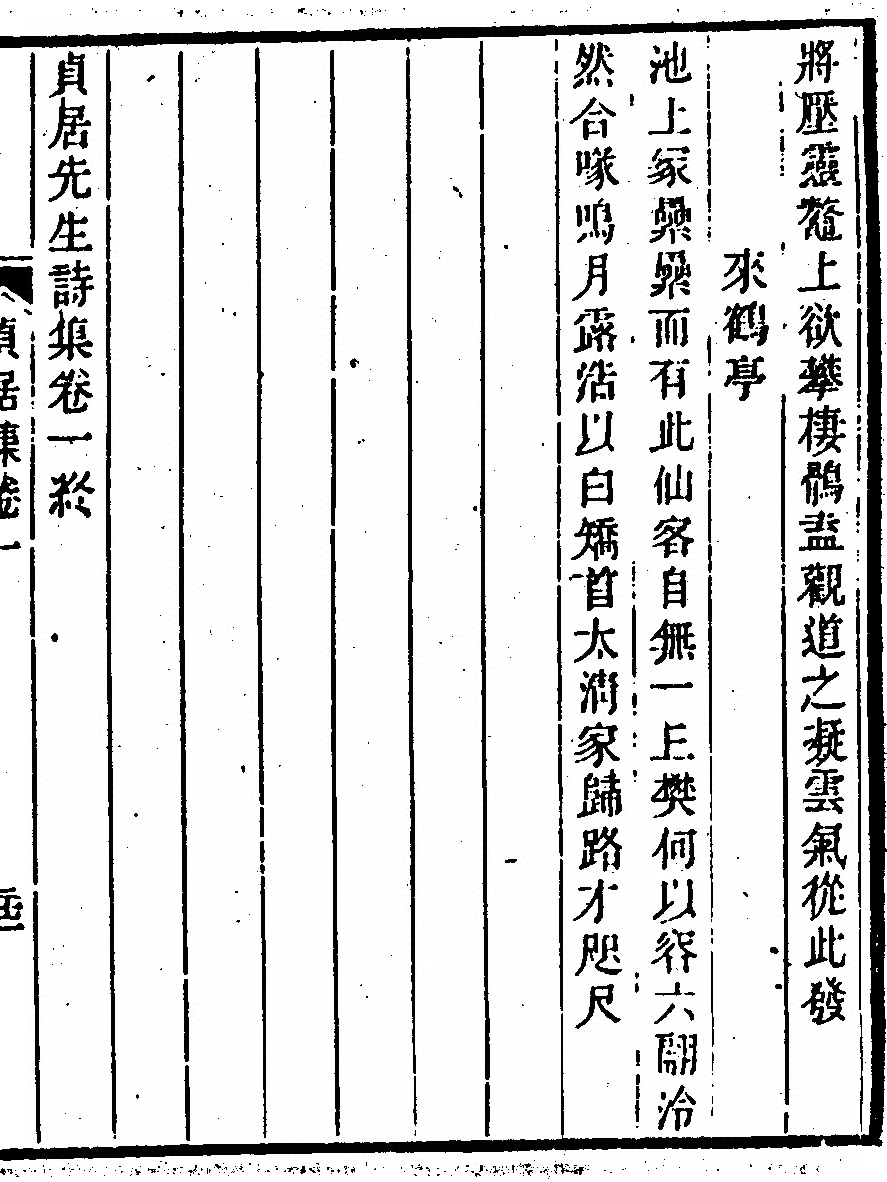 將壓靈鼇上欲攀棲鶻盍觀道之凝雲氣從此發
來鶴亭
池上冢纍纍而有此仙客自無一上樊何以容六翮泠
然合喙鳴月露浩以白矯首太清家歸路才咫尺
貞居先生詩集卷一終
貞居集卷一